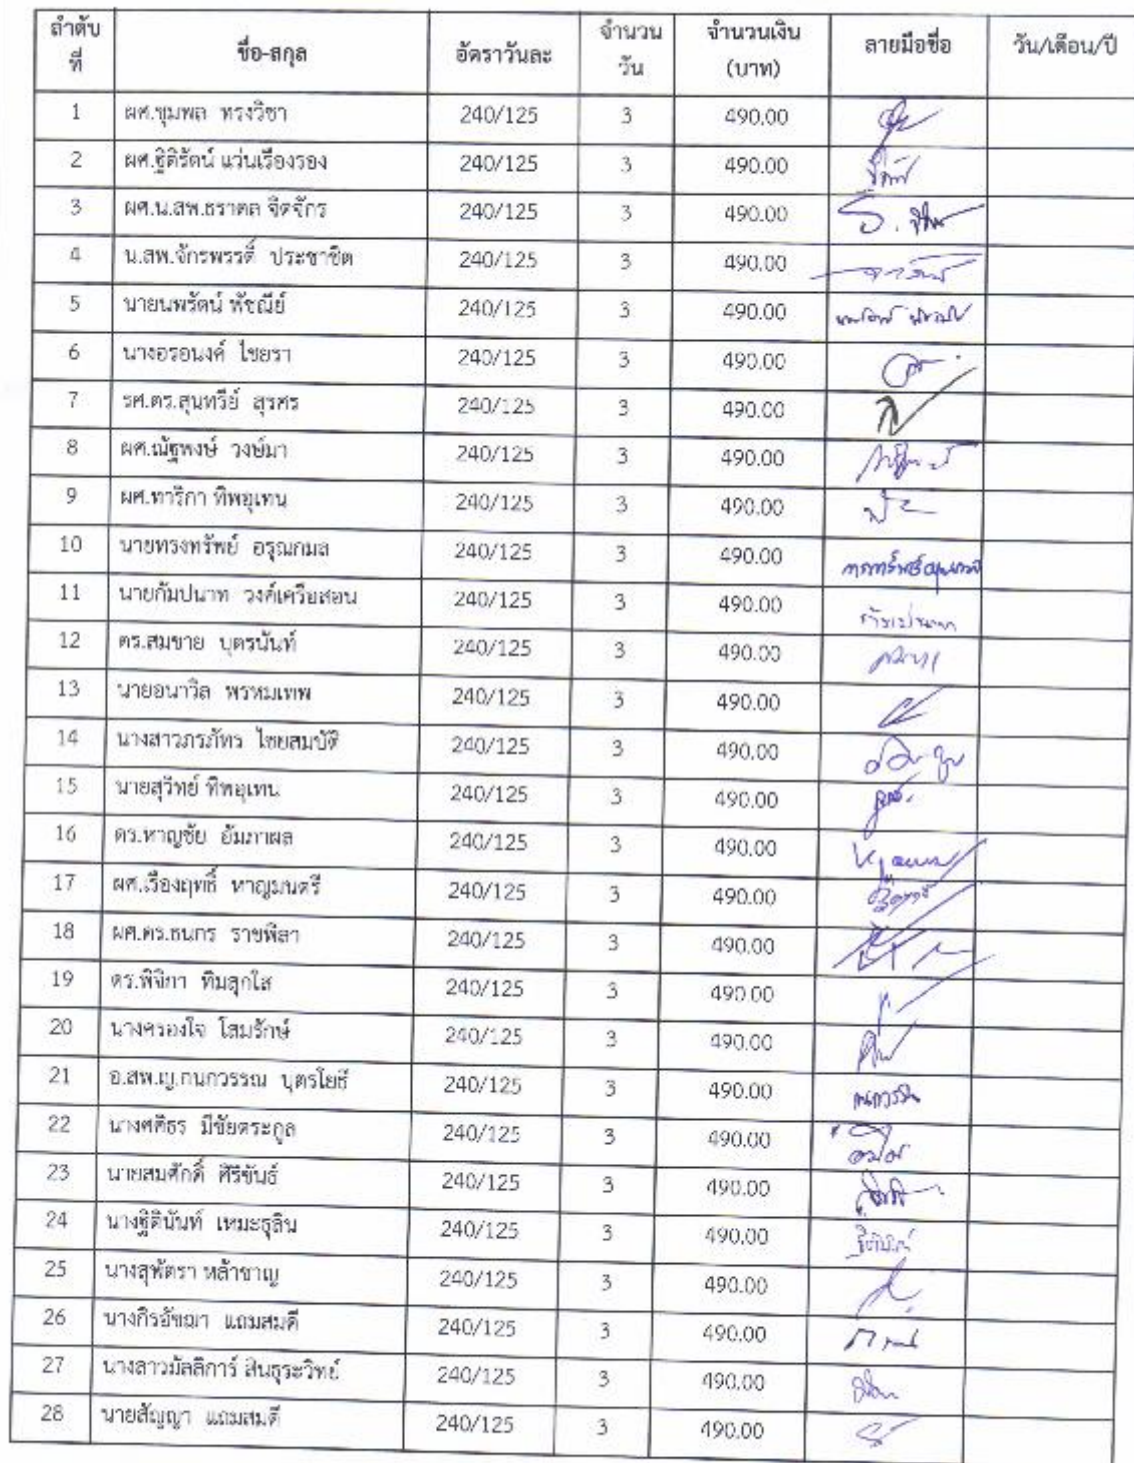 ลำดับที่ ชื่อ-สกุล อัตราวันละ จำนวนวัน จำนวนเงิน (บาท) ลายมือชื่อ วัน/เดือน/ปี
1 ผศ.ชุมพล ทรงวิชา 240/125 3 490.00
2 ผศ.ฐิติรัตน์ แว่นเรืองรอง 240/125 3 490.00
3 ผศ.น.สพ.ธราดล จิตจักร 240/125 3 490.00
4 น.สพ.จักรพรรดิ์ ประชาชิต 240/125 3 490.00
5 นายนพรัตน์ พัชณีย์ 240/125 3 490.00
6 นางอรอนงค์ ไชยรา 240/125 3 490.00
7 รศ.ดร.สุนทรีย์ สุรศร 240/125 3 490.00
8 ผศ.ณัฐพงษ์ วงษ์มา 240/125 3 490.00
9 ผศ.ทาริกา ทิพอุเทน 240/125 3 490.00
10 นายทรงทรัพย์ อรุณกมล 240/125 3 490.00
11 นายกัมปนาท วงค์เครือสอน 240/125 3 490.00
12 ดร.สมชาย บุตรนันท์ 240/125 3 490.00
13 นายอนาวิล พรหมเทพ 240/125 3 490.00
14 นางสาวภรภัทร ไชยสมบัติ 240/125 3 490.00
15 นายสุวิทย์ ทิพอุเทน 240/125 3 490.00
16 ดร.หาญชัย อัมภาผล 240/125 3 490.00
17 ผศ.เรืองฤทธิ์ หาญมนตรี 240/125 3 490.00
18 ผศ.ดร.ธนกร ราชพิลา 240/125 3 490.00
19 ดร.พิจิกา ทิมสุกใส 240/125 3 490.00
20 นางครองใจ โสมรักษ์ 240/125 3 490.00
21 อ.สพ.ญ.กนกวรรณ บุตรโยธี 240/125 3 490.00
22 นางศศิธร มีชัยตระกูล 240/125 3 490.00
23 นายสมศักดิ์ ศิริขันธ์ 240/125 3 490.00
24 นางฐิตินันท์ เหมะธุลิน 240/125 3 490.00
25 นางสุพัตรา หล้าชาญ 240/125 3 490.00
26 แถมสมดี 240/125 3 490.00
27 นางสาวมัลลิการ์ สินธุระวิทย์ 240/125 3 490.00
28 นายสัญญา แถมสมดี 240/125 3 490.00